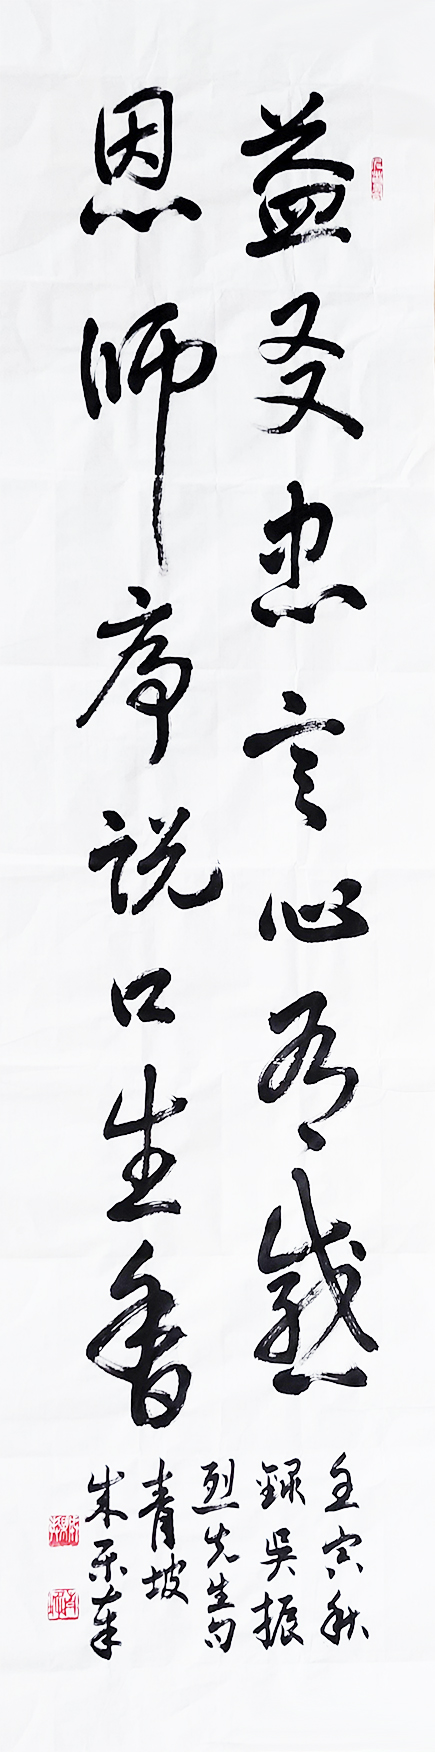 益友忠言心为感
恩师序说口生香
壬寅秋
録吴振
烈先生句
青坡
朱乐